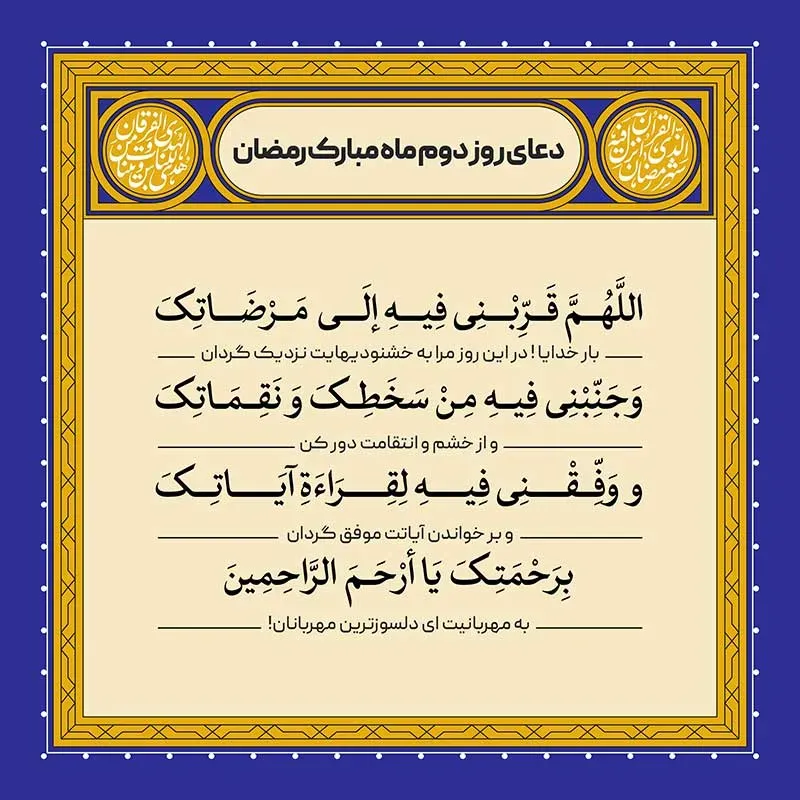 دعای روز دوم ماه مبارک رمضان
اللَّهُمَّ قَرِّبْنِی فِیهِ إِلَی مَرْضَاتِکَ
بار خدایا ! در این روز مرا به خشنودیهایت نزدیک گردان
وَجَنِّبْنِی فِیهِ مِنْ سَخَطِکَ وَ نَقِمَاتِکَ
و از خشم و انتقامت دور کن
و وَفِّقْنِی فِیهِ لِقِرَاءَةِ آیَاتِکَ
و بر خواندن آیاتت موفق گردان
بِرَحْمَتِکَ یَا أَرْحَمَ الرَّاحِمِینَ
به مهربانیت ای دلسوزترین مهربانان!